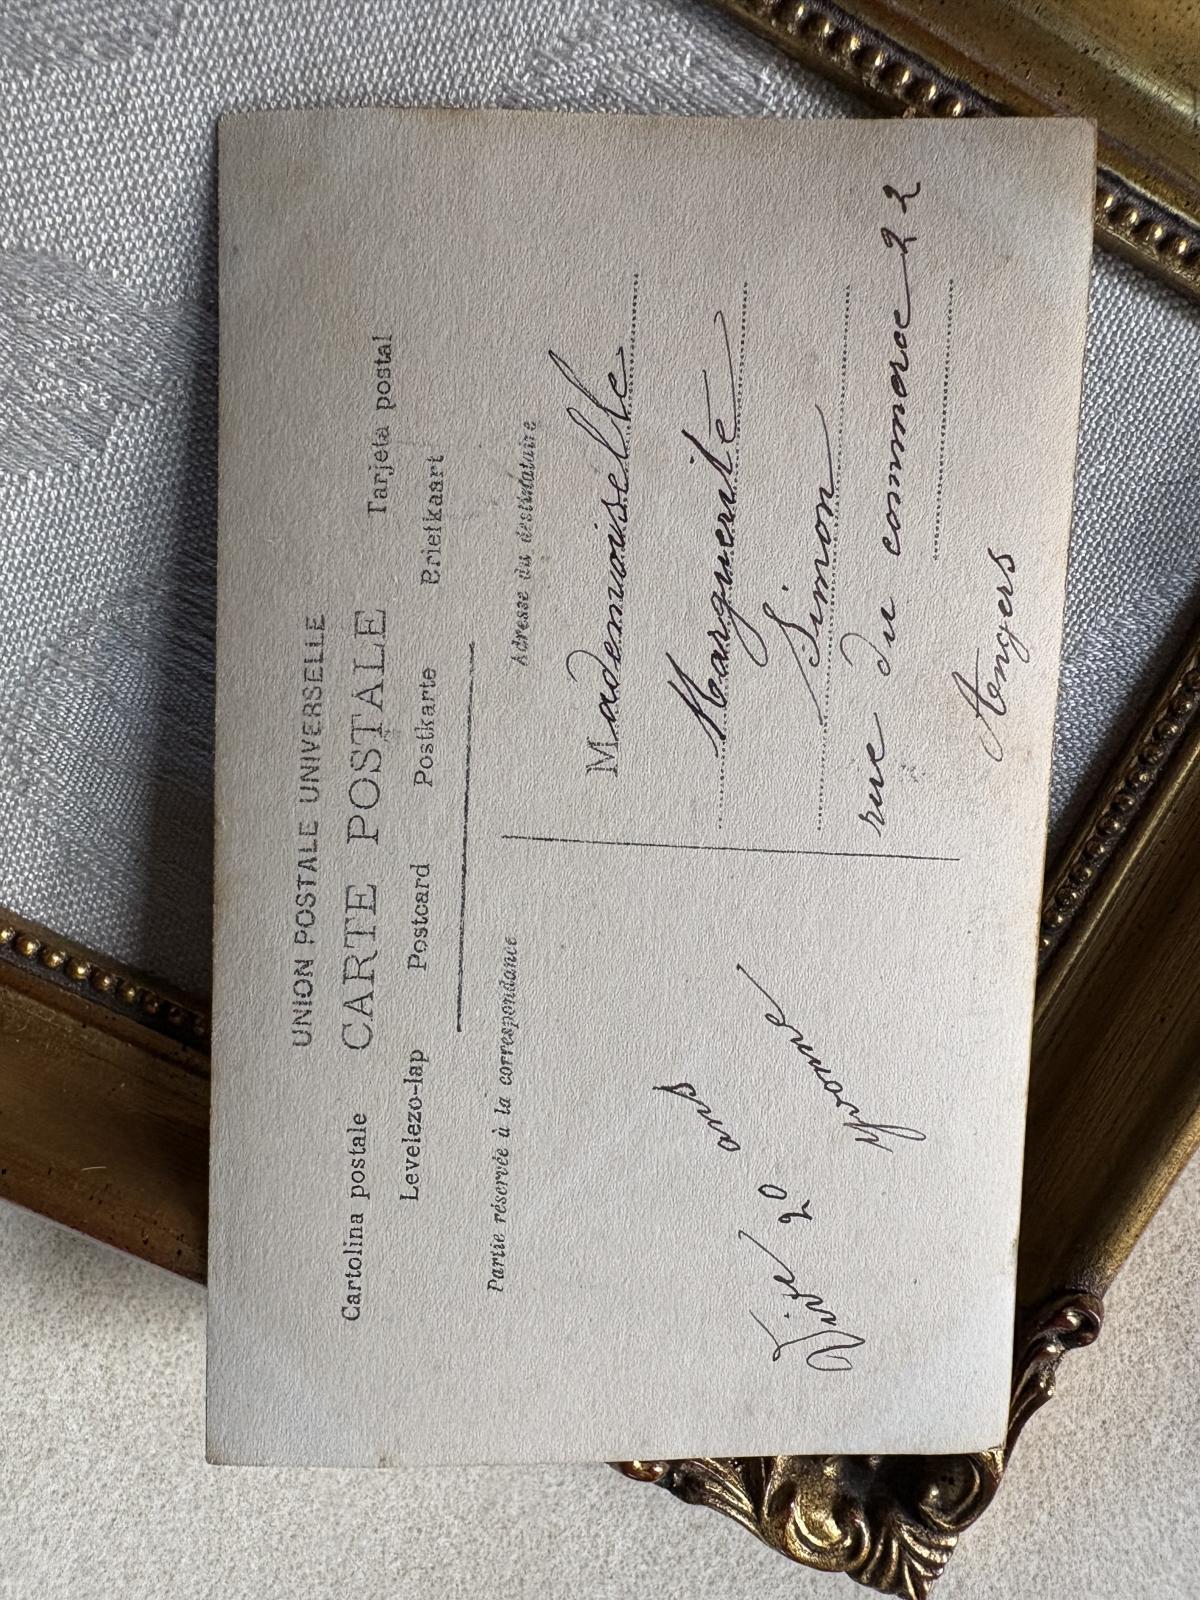 UNION POSTALE UNIVERSELLE
Cartolina postale CARTE POSTALE Tarjeta postal
Levelezo-lap Postcard Postkarte Briefkaart
Partie réservée à la correspondance
Vive 20 ans
Yvonne
Adresse du destinataire
Mademoiselle
Marguerite
Simon
rue du commerce 22
Angers